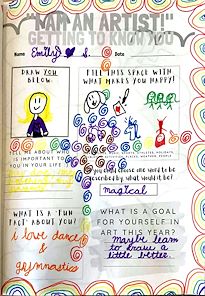 "I AM AN ARTIST!"
GETTING TO KNOW YOU
Name Emily S. Date
DRAW YOU
BELOW.
FILL THIS SPACE WITH
WHAT MAKES YOU HAPPY!
TELL ME ABOUT WHO
IS IMPORTANT TO
YOU IN YOUR LIFE.
If you could choose one word to be
described by, what would it be?
magical
WHAT IS A "FUN
FACT" ABOUT YOU?
i love dance
&
gymnastics
WHAT IS A GOAL
FOR YOURSELF IN
ART THIS YEAR?
Maybe learn
to draw a
little better.